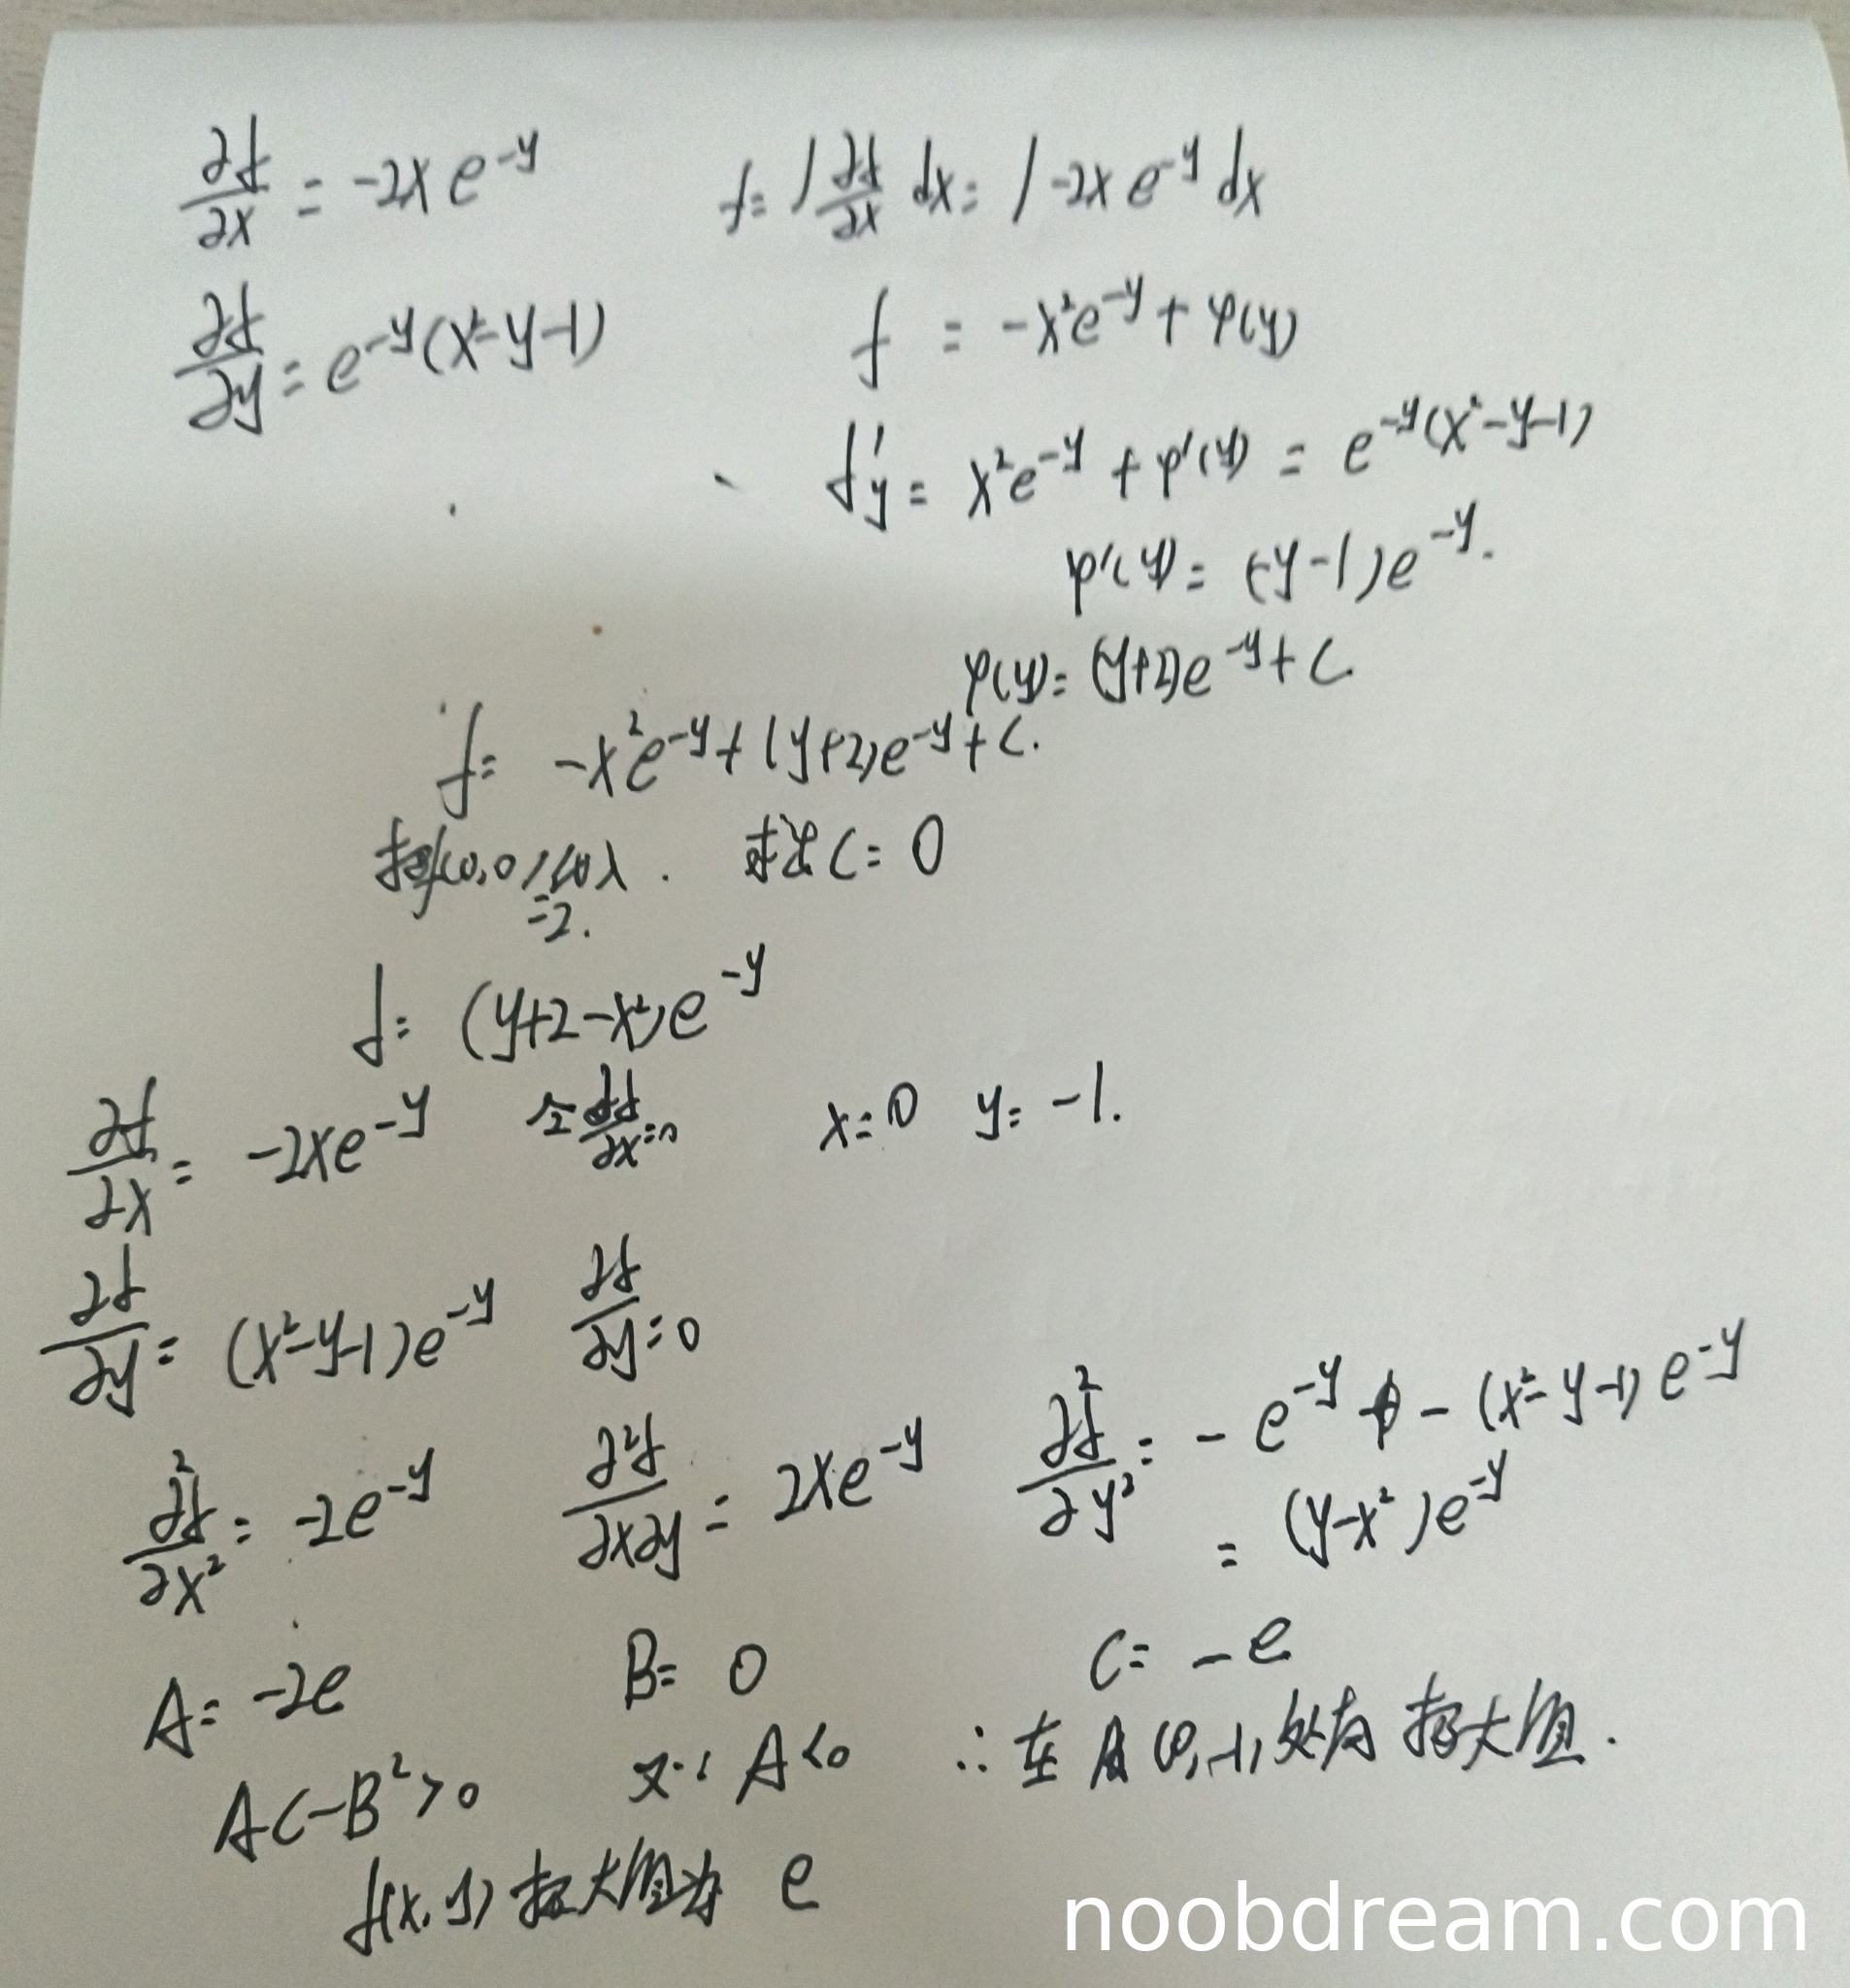 ∂f/∂x = -2xe^{-y}    f = ∫ ∂f/∂x dx = ∫ -2xe^{-y} dx
∂f/∂y = e^{-y}(x²-y-1)    f = -x²e^{-y} + φ(y)
f'y = x²e^{-y} + φ'(y) = e^{-y}(x²-y-1)
φ'(y) = (-y-1)e^{-y}.
φ(y) = (y+2)e^{-y} + C.
f = -x²e^{-y} + (y+2)e^{-y} + C.
把f(0,0)=2.代入. 求出 C = 0
f = (y+2-x²)e^{-y}
∂f/∂x = -2xe^{-y}    令 ∂f/∂x = 0    x = 0  y = -1.
∂f/∂y = (x²-y-1)e^{-y}    ∂f/∂y = 0
∂²f/∂x² = -2e^{-y}    ∂²f/∂x∂y = 2xe^{-y}    ∂²f/∂y² = -e^{-y} - (x²-y-1)e^{-y}
= (y-x²)e^{-y}
A = -2e    B = 0    C = -e
AC-B²>0    又∵ A<0    ∴在 (0,-1)处有 极大值.
f(x,y) 极大值为 e
noobdream.com